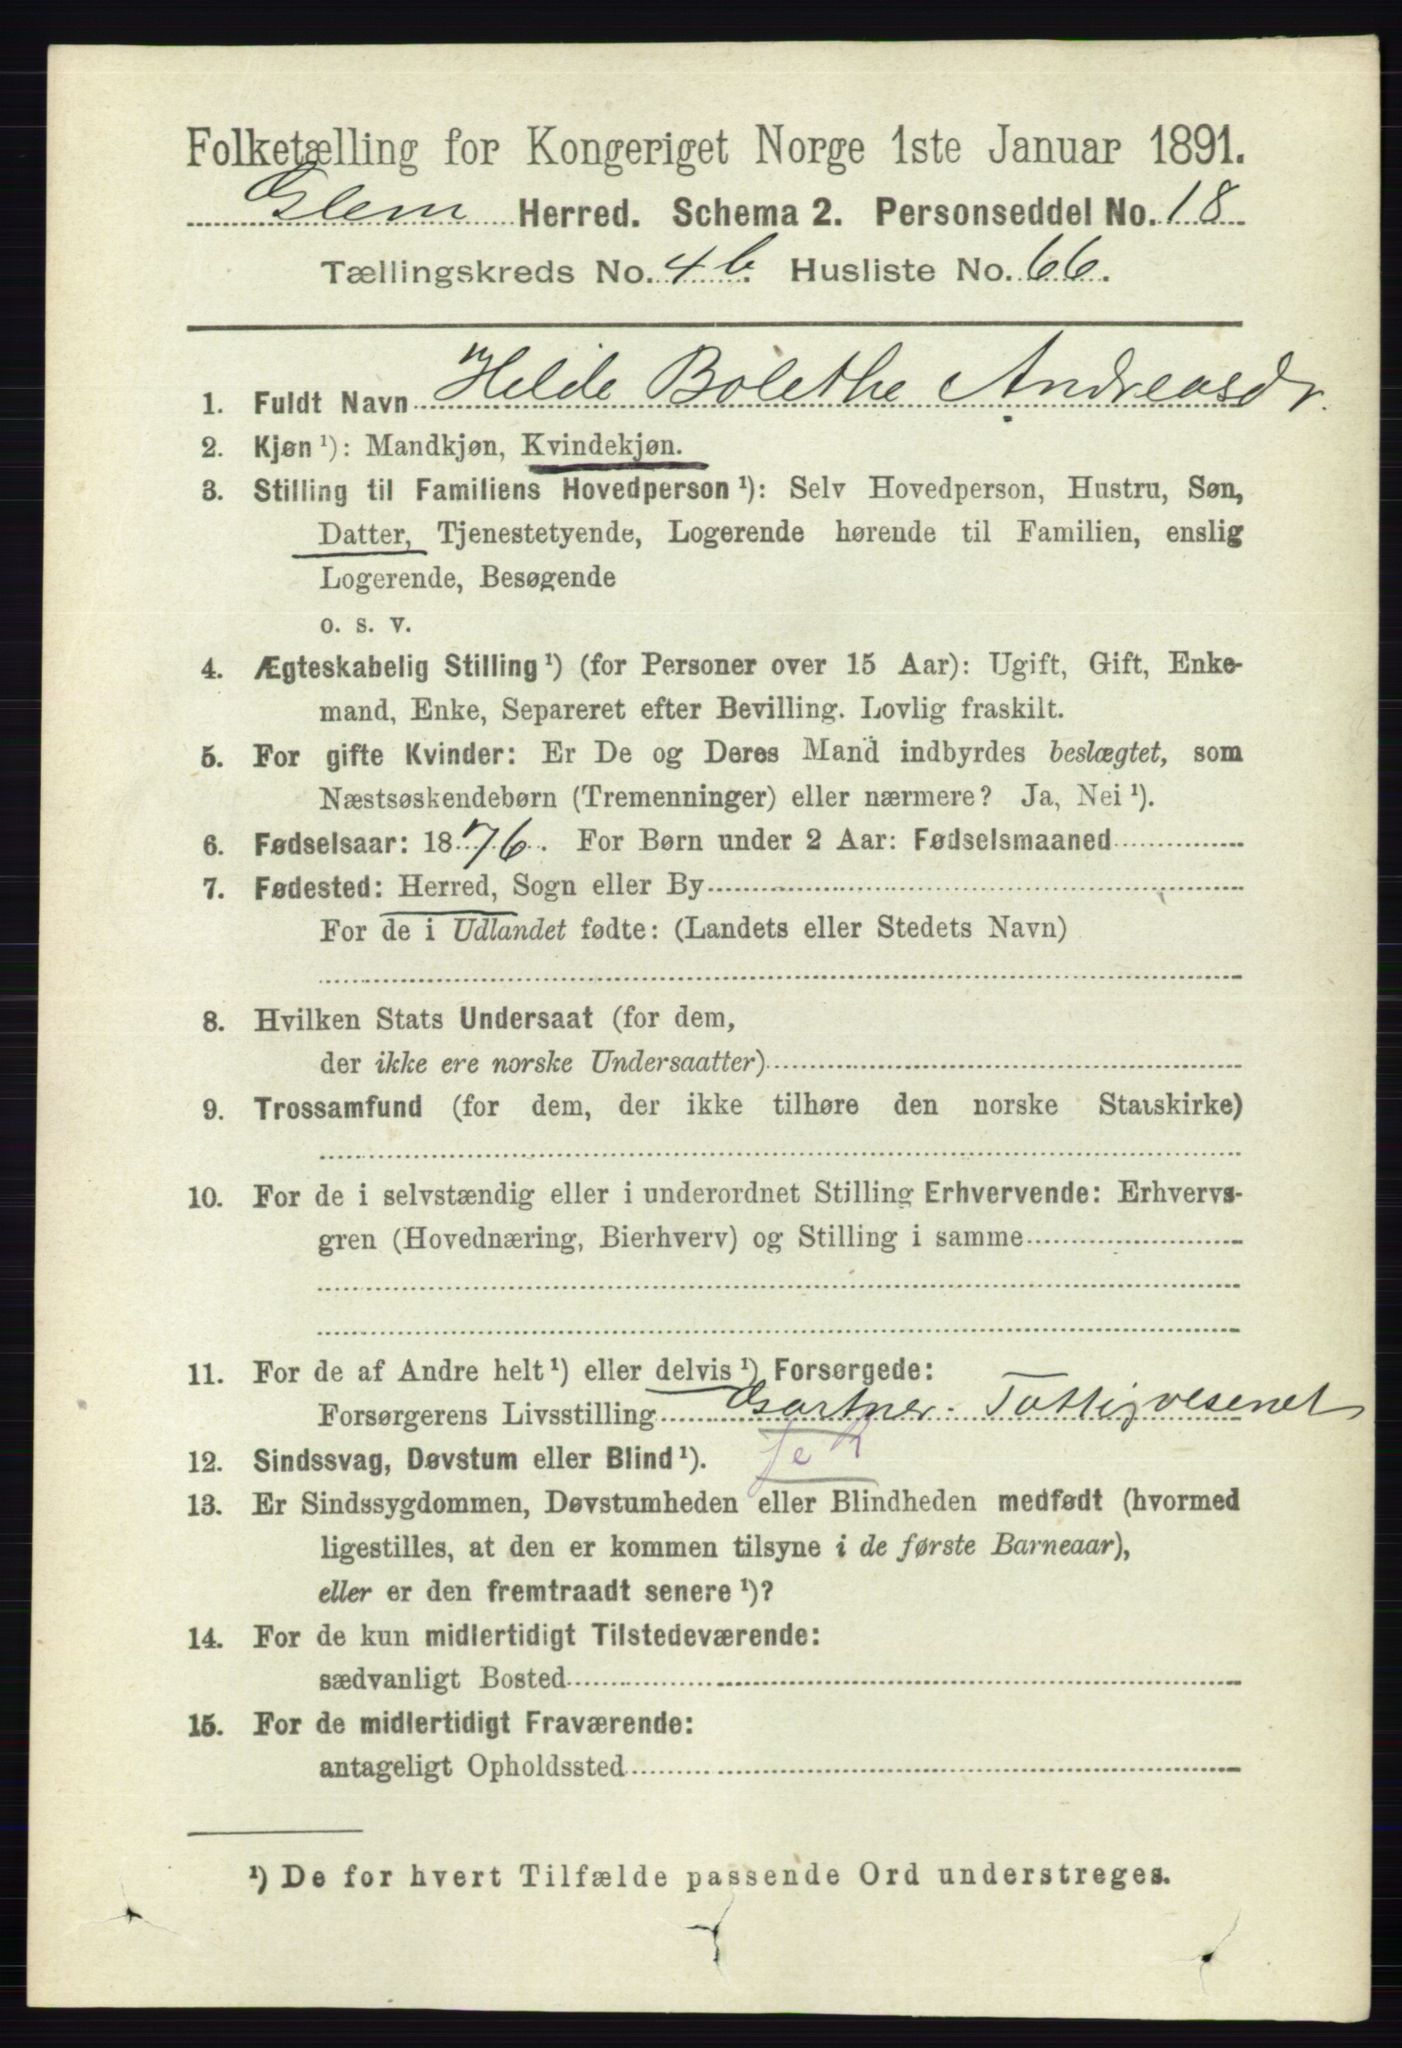 Folketælling for Kongeriget Norge 1ste Januar 1891.
Glem Herred. Schema 2. Personseddel No. 18
Tællingskreds No. 4b. Husliste No. 66.
1. Fuldt Navn Helde Bolethe Andreasdr.
2. Kjøn ¹): Mandkjøn, Kvindekjøn.
3. Stilling til Familiens Hovedperson ¹): Selv Hovedperson, Hustru, Søn,
Datter, Tjenestetyende, Logerende hørende til Familien, enslig
Logerende, Besøgende
o. s. v.
4. Ægteskabelig Stilling ¹) (for Personer over 15 Aar): Ugift, Gift, Enke-
mand, Enke, Separeret efter Bevilling. Lovlig fraskilt.
5. For gifte Kvinder: Er De og Deres Mand indbyrdes beslægtet, som
Næstsøskendebørn (Tremenninger) eller nærmere? Ja, Nei ¹).
6. Fødselsaar: 1876. For Børn under 2 Aar: Fødselsmaaned
7. Fødested: Herred, Sogn eller By
For de i Udlandet fødte: (Landets eller Stedets Navn)
8. Hvilken Stats Undersaat (for dem,
der ikke ere norske Undersaatter)
9. Trossamfund (for dem, der ikke tilhøre den norske Statskirke)
10. For de i selvstændig eller i underordnet Stilling Erhvervende: Erhvervs-
gren (Hovednæring, Bierhverv) og Stilling i samme
11. For de af Andre helt ¹) eller delvis ¹) Forsørgede:
Forsørgerens Livsstilling Gartner. Fattigvesenet
12. Sindssvag, Døvstum eller Blind ¹).
13. Er Sindssygdommen, Døvstumheden eller Blindheden medfødt (hvormed
ligestilles, at den er kommen tilsyne i de første Barneaar),
eller er den fremtraadt senere ¹)?
14. For de kun midlertidigt Tilstedeværende:
sædvanligt Bosted
15. For de midlertidigt Fraværende:
antageligt Opholdssted
¹) De for hvert Tilfælde passende Ord understreges.